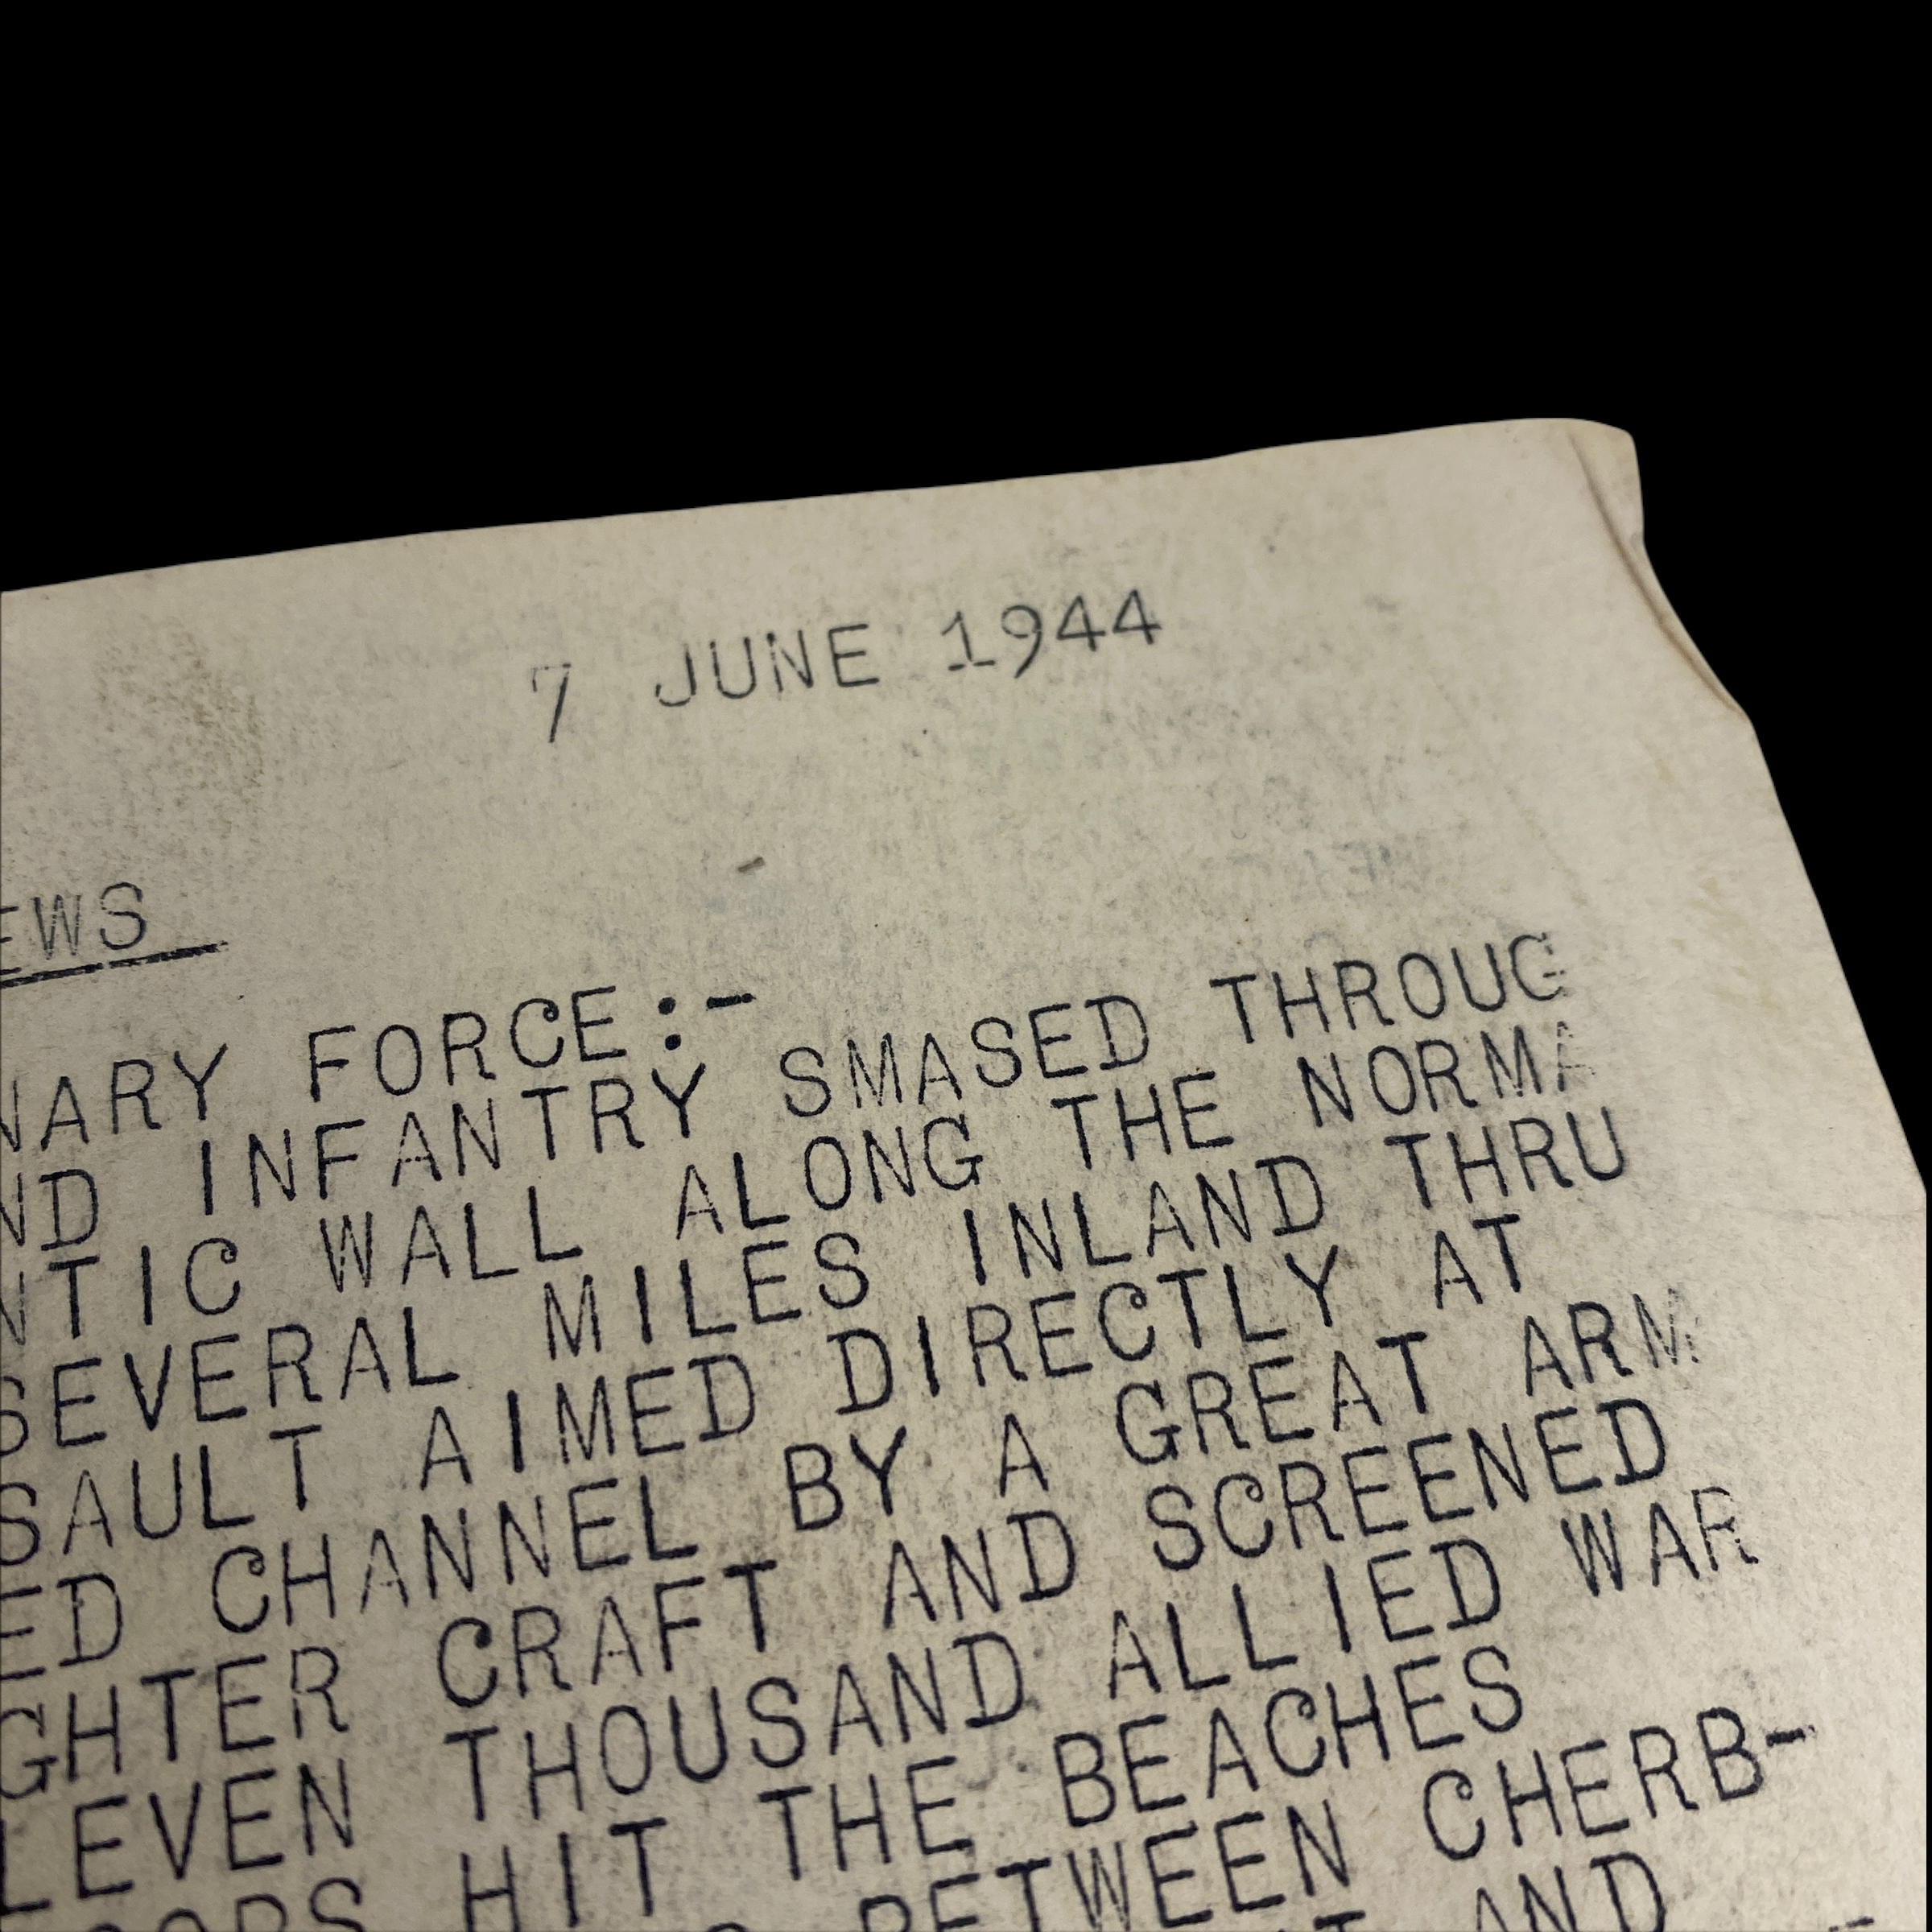 7 JUNE 1944
EWS
NARY FORCE:-
ND INFANTRY SMASED THROUG
NTIC WALL ALONG THE NORMA
SEVERAL MILES INLAND THRU
SAULT AIMED DIRECTLY AT
ED CHANNEL BY A GREAT ARM
GHTER CRAFT AND SCREENED
LEVEN THOUSAND ALLIED WAR
OOPS HIT THE BEACHES
BETWEEN CHERB-
AND